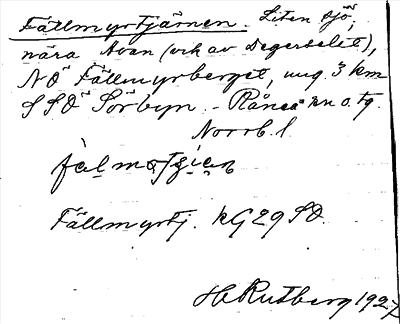 Fällmyrtjärnen. Liten sjö,
nära Avan (och av Degerselet),
NÖ Fällmyrberget, ung. 3 km
SSÖ Sörbyn. - Råneå sn o. tg.
Norrb. l
Fällmyrtj. KG29SO.
H Rutberg 1927